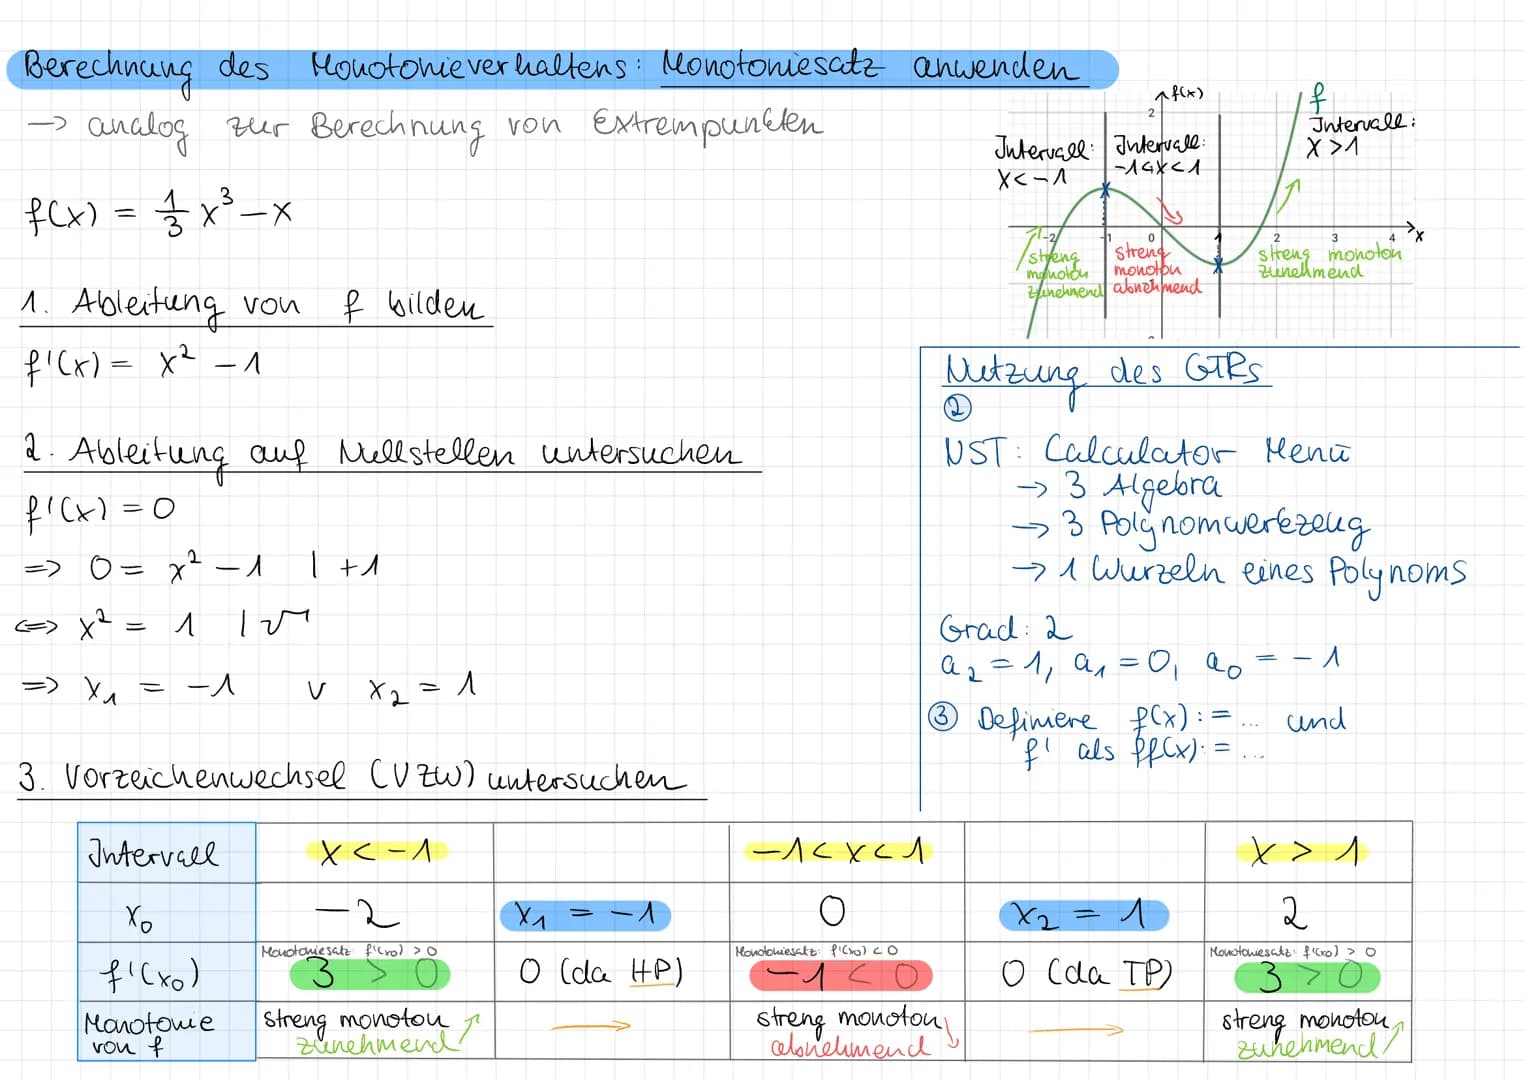 Berechnung des Monotonieverhaltens: Monotoniesatz anwenden
→ analog zur Berechnung von Extrempunkten
f(x) = 1/3 x³ - x
1. Ableitung von f bilden
f'(x) = x² - 1
2. Ableitung auf Nullstellen untersuchen
f'(x) = 0
=> 0 = x² - 1 | +1
<=> x² = 1 | √
=> x₁ = -1 v x₂ = 1
3. Vorzeichenwechsel (VZW) untersuchen
f(x)
f
2
Intervall: x < -1
Intervall: -1 < x < 1
Intervall: x > 1
-2 -1 0 1 2 3 4 x
streng monoton zunehmend
streng monoton abnehmend
streng monoton zunehmend
Nutzung des GTRs
②
NST: Calculator Menü
→ 3 Algebra
→ 3 Polynomwerkzeug
→ 1 Wurzeln eines Polynoms
Grad: 2
a₂ = 1, a₁ = 0, a₀ = -1
③ Definiere f(x) := ... und
f' als ff(x) := ...
Intervall x < -1 -1 < x < 1 x > 1
x₀ -2 x₁ = -1 0 x₂ = 1 2
Monotoniesatz: f'(x₀) > 0 Monotoniesatz: f'(x₀) < 0 Monotoniesatz: f'(x₀) > 0
f'(x₀) 3 > 0 0 (da HP) -1 < 0 0 (da TP) 3 > 0
Monotonie streng monoton → streng monoton → streng monoton
von f zunehmend abnehmend zunehmend